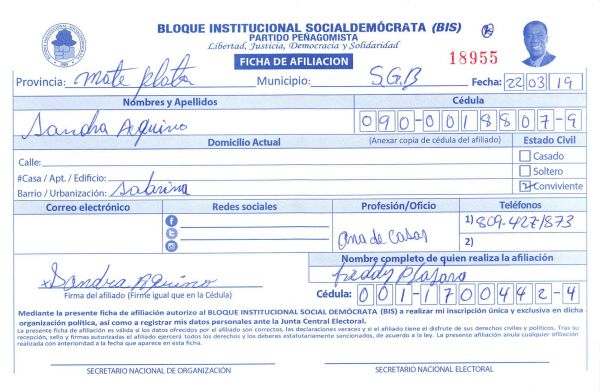 BLOQUE INSTITUCIONAL SOCIALDEMÓCRATA (BIS)
PARTIDO PEÑAGOMISTA
Libertad, Justicia, Democracia y Solidaridad
FICHA DE AFILIACION
18955
Provincia: Monte Plata Municipio: S.G.B Fecha: 22 03 19
Nombres y Apellidos Cédula
Sandra Aquino 090-0018807-9
Domicilio Actual (Anexar copia de cédula del afiliado) Estado Civil
Calle: Casado
#Casa / Apt. / Edificio: Soltero
Barrio / Urbanización: Sabrina Conviviente
Correo electrónico Redes sociales Profesión/Oficio Teléfonos
ama de casas 1) 809-427-1873
2)
Nombre completo de quien realiza la afiliación
Sandra Aquino Freddy
Firma del afiliado (Firme igual que en la Cédula) Cédula: 001-1700442-4
Mediante la presente ficha de afiliación autorizo al BLOQUE INSTITUCIONAL SOCIAL DEMÓCRATA (BIS) a realizar mi inscripción única y exclusiva en dicha
organización política, así como a registrar mis datos personales ante la Junta Central Electoral.
La presente ficha de afiliación es válida a los datos ofrecidos por el afiliado son correctos, las declaraciones veraces y si el afiliado tiene el disfrute de sus derechos civiles y políticos. Tras su
recepción, sello y firmas autorizadas el afiliado ejercerá todos los derechos y los deberes estatutariamente sancionados, de acuerdo a la ley. La presente afiliación anula cualquier afiliación
realizada con anterioridad a la fecha que aparece en esta ficha.
SECRETARIO NACIONAL DE ORGANIZACIÓN SECRETARIO NACIONAL ELECTORAL